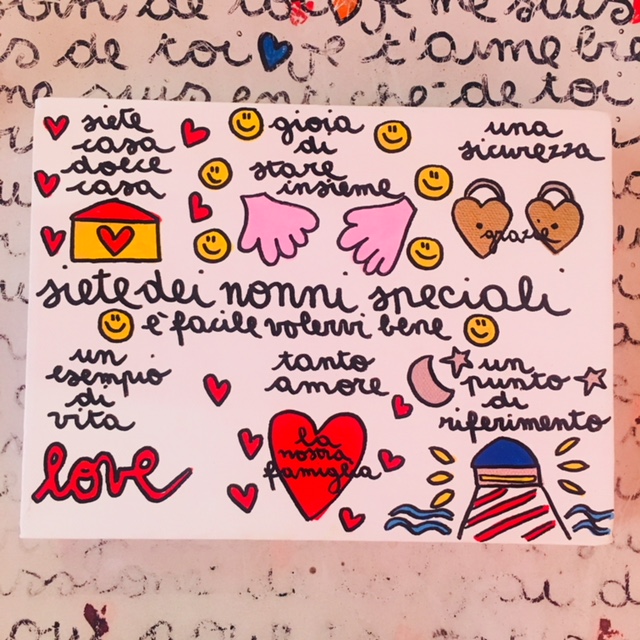 oin de toi je me suis
s de toi je t'aime bie
me suis entiché de toi
siete
casa
dolce
casa
gioia
di
stare
insieme
una
sicurezza
grazie
siete dei nonni speciali
è facile volervi bene
un
esempio
di
vita
love
tanto
amore
la
nostra
famiglia
un
punto
di
riferimento